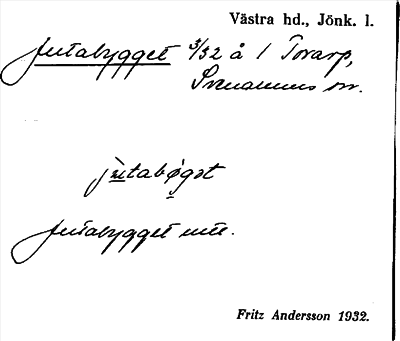 Västra hd., Jönk. l.
Jutabygget 3/32 å 1 Torarp,
Svenarums sn.
jutabøgət
Jutabygget
Fritz Andersson 1932.